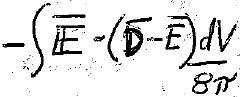 -∫E̅-(D̅-E̅)dV/8π